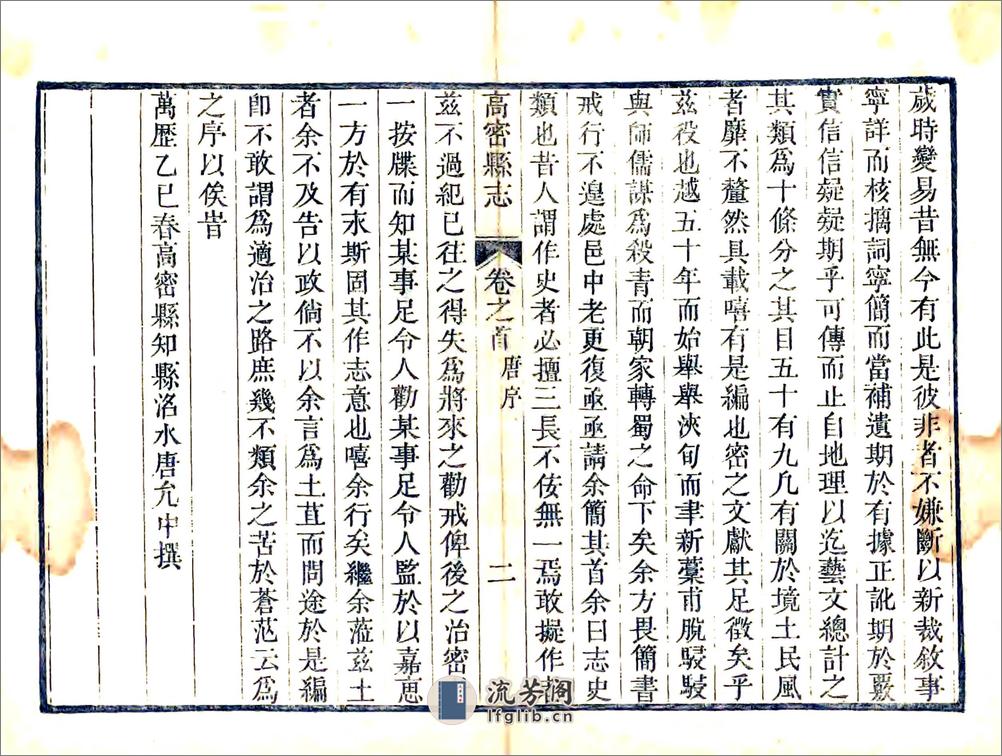 歲時變易昔無今有此是彼非者不嫌斷以新裁敘事
寧詳而核摛詞寧簡而當補遺期於有據正訛期於覈
實信信疑疑期乎可傳而止自地理以迄藝文總計之
其類爲十條分之其目五十有九凢有關於境土民風
者靡不釐然具載嘻有是編也密之文獻其足徵矣乎
茲役也越五十年而始舉舉浹旬而聿新藁甫脫駸駸
與師儒謀爲殺青而朝家轉蜀之命下矣余方畏簡書
戒行不遑處邑中老更復亟亟請余簡其首余曰志史
類也昔人謂作史者必擅三長不佞無一焉敢擬作
高密縣志
卷之首
唐序
二
茲不過紀已往之得失爲將來之勸戒俾後之治密
一按牒而知某事足令人勸某事足令人監於以嘉惠
一方於有永斯固其作志意也嘻余行矣繼余蒞茲土
者余不及告以政倘不以余言爲土苴而問途於是編
卽不敢謂爲適治之路庶幾不類余之苦於蒼茫云爲
之序以俟旹
萬歷乙巳春高密縣知縣洺水唐允中撰
流芳閣
lfglib.cn